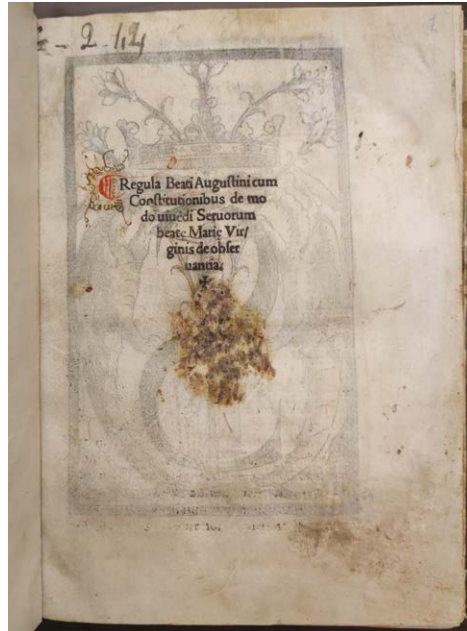 2.14
1
Regula Beati Augustini cum
Constitutionibus de mo
do uiuẽdi Seruorum
beatę Marię Vir/
ginis de obser
uantia.